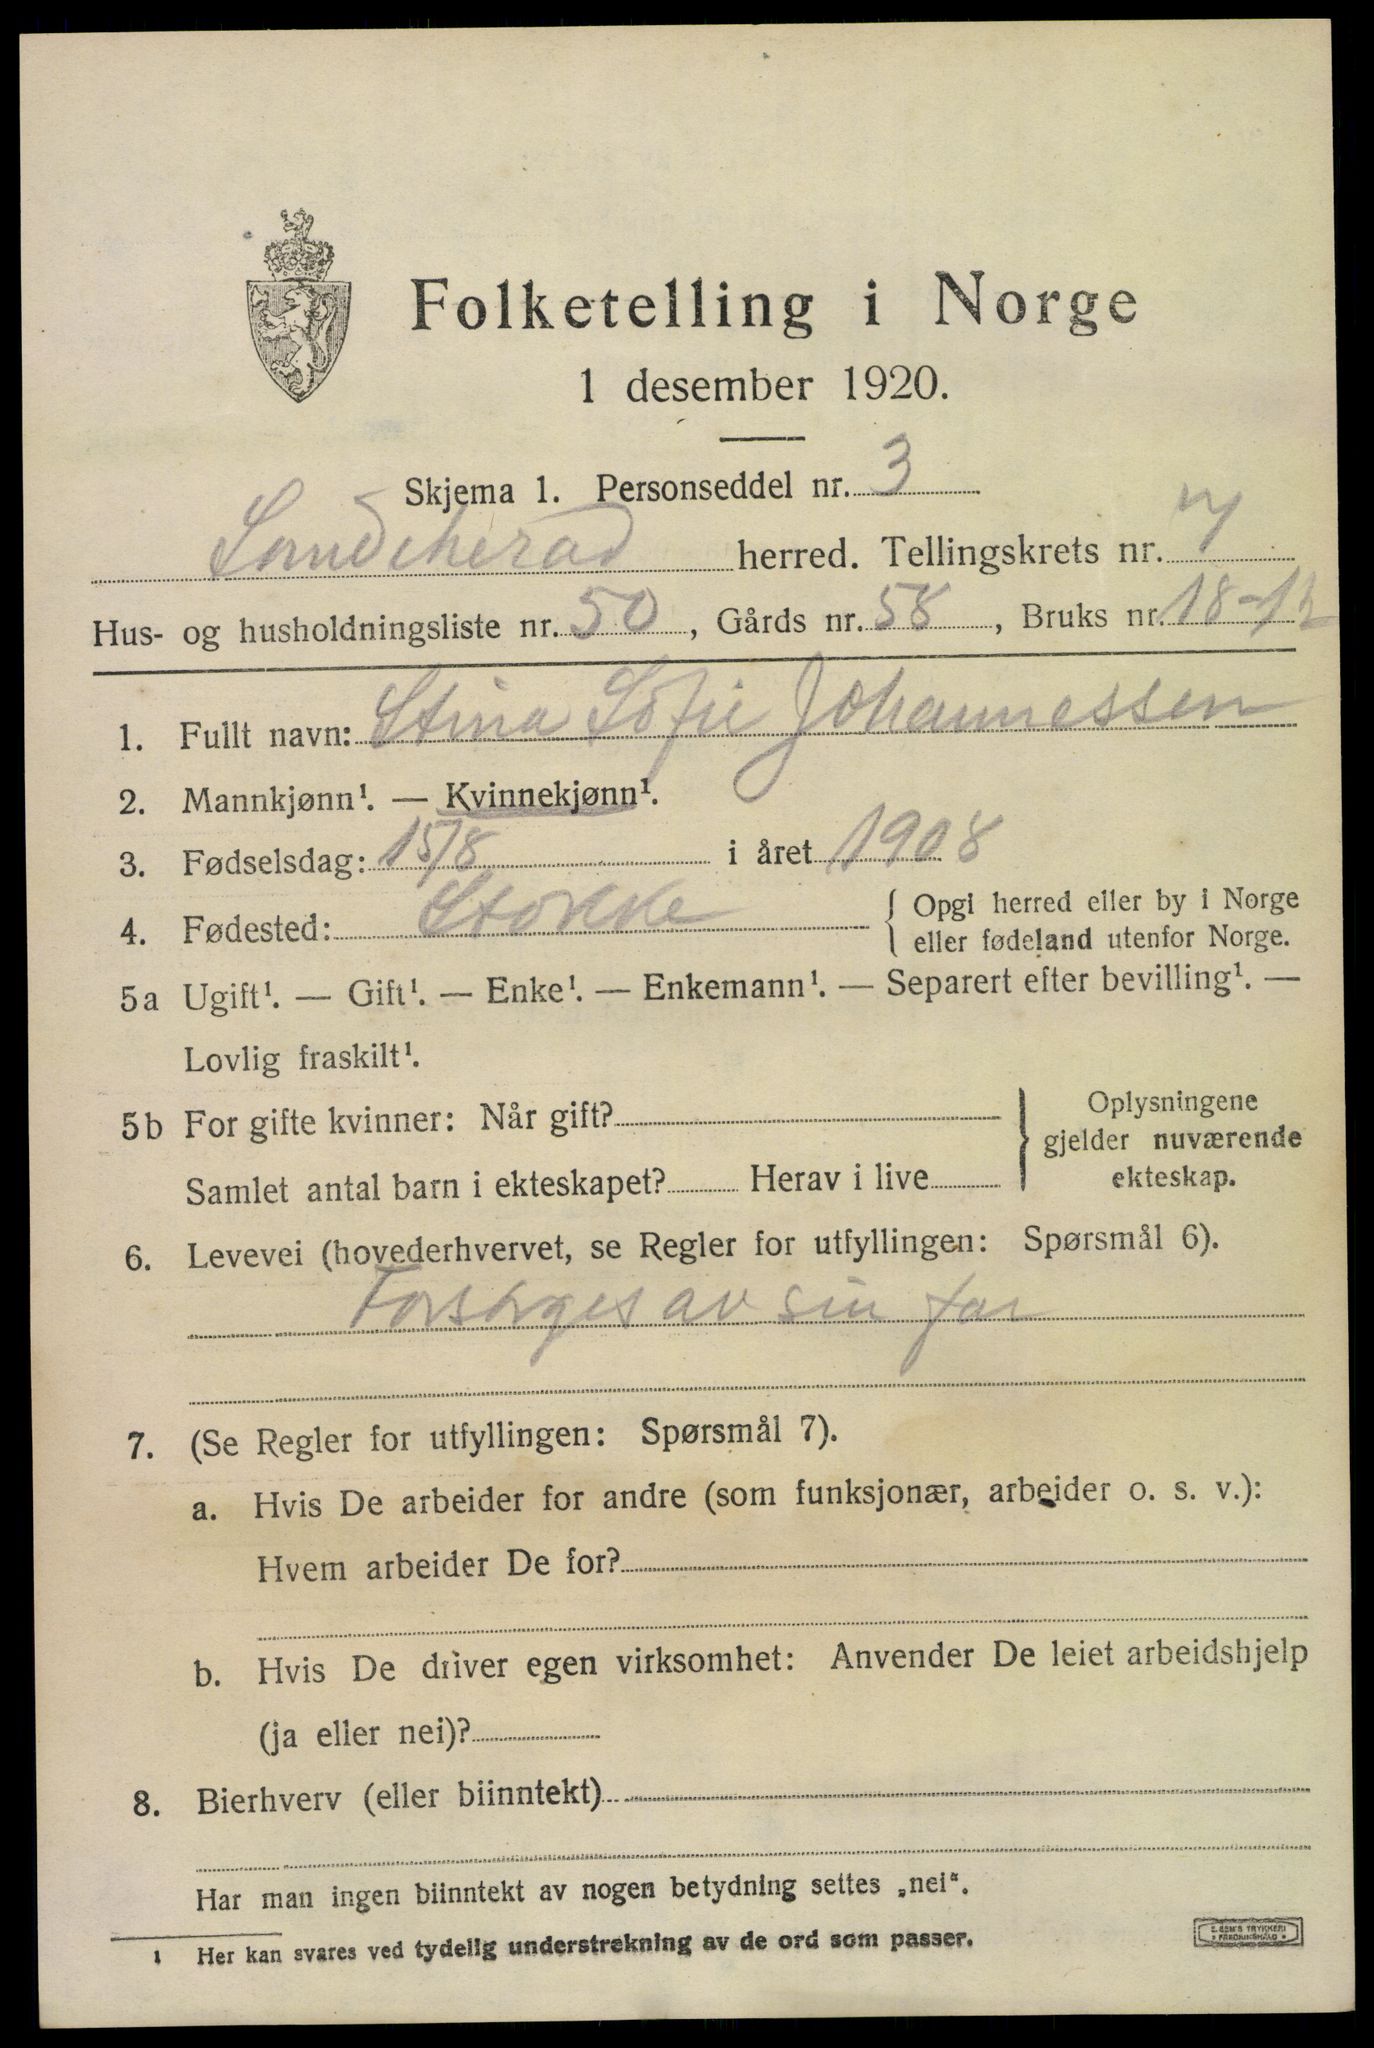 Folketelling i Norge
1 desember 1920.
Skjema 1. Personseddel nr. 3
Sandeherad herred. Tellingskrets nr. 7
Hus- og husholdningsliste nr. 50, Gårds nr. 58, Bruks nr. 18-12
1. Fullt navn: Stina Sofie Johannessen
2. Mannkjønn¹. — Kvinnekjønn¹.
3. Fødselsdag: 15/8 i året 1908
4. Fødested: Stokke { Opgi herred eller by i Norge
eller fødeland utenfor Norge.
5a Ugift¹. — Gift¹. — Enke¹. — Enkemann¹. — Separert efter bevilling¹. —
Lovlig fraskilt¹.
5b For gifte kvinner: Når gift?
Samlet antal barn i ekteskapet? Herav i live
} Oplysningene
gjelder nuværende
ekteskap.
6. Levevei (hovederhvervet, se Regler for utfyllingen: Spørsmål 6).
Forsørges av sin far
7. (Se Regler for utfyllingen: Spørsmål 7).
a. Hvis De arbeider for andre (som funksjonær, arbeider o. s. v.):
Hvem arbeider De for?
b. Hvis De driver egen virksomhet: Anvender De leiet arbeidshjelp
(ja eller nei)?
8. Bierhverv (eller biinntekt)
Har man ingen biinntekt av nogen betydning settes „nei“.
1 Her kan svares ved tydelig understrekning av de ord som passer.
E. SEM'S TRYKKERI
FREDRIKSHALD